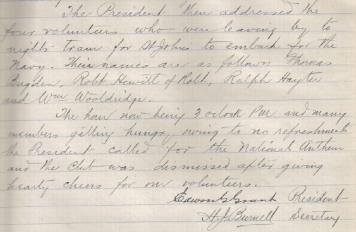 The President then addressed the
four volunteers who were leaving by to
nights train for St Johns to embark for the
Navy. Their names are as follows Thomas
Robt Hewitt of Robt, Ralph Hayter
and Wm Wooldridge.
The hour now being 3 oclock P.M and many
members getting hungry owing to no refreshments
the President called for the National Anthem
and the Club was dismissed after giving
hearty cheers for our volunteers.
Edwin G Grant President
H.J. Burnell Secretary